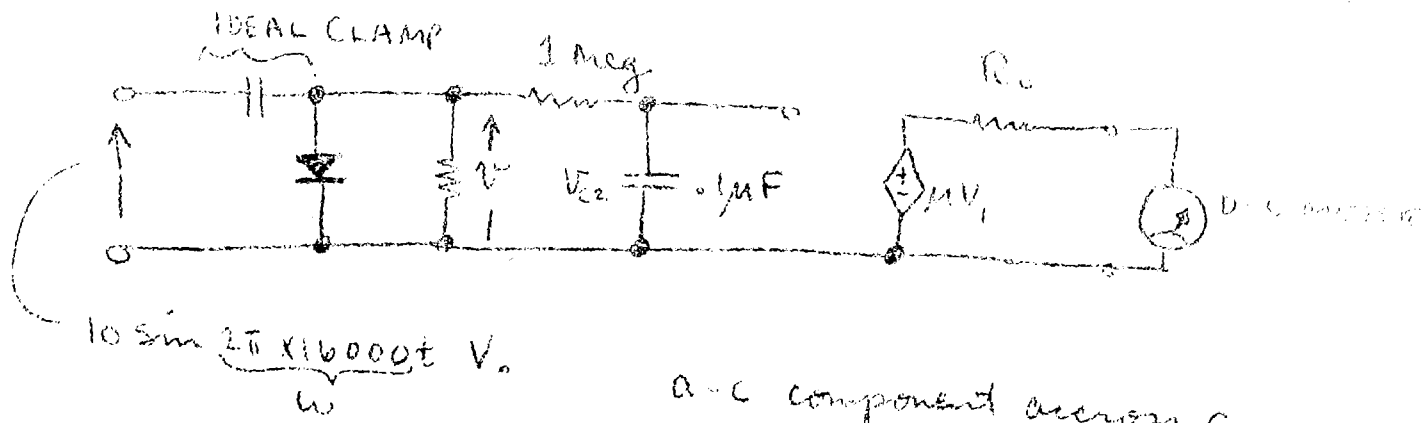 IDEAL CLAMP
1 meg
R₀
v
V_C2
.1μF
μV₁
D-C
10 sin 2π×16000t V.
ω
a-c component across